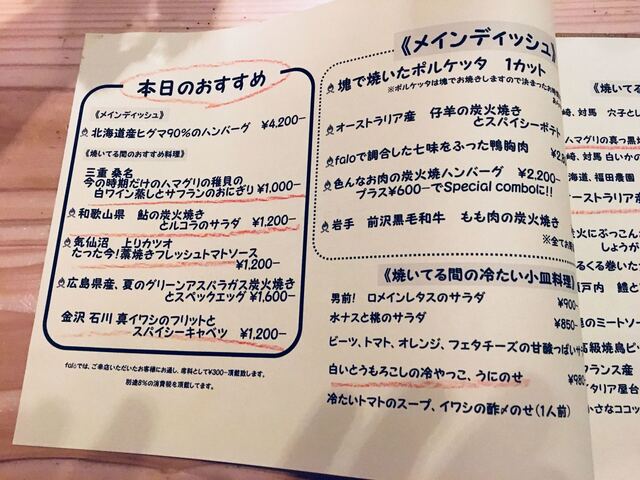 本日のおすすめ
《メインディッシュ》
北海道産ヒグマ90%のハンバーグ ¥4,200-
《焼いてる間のおすすめ料理》
三重 桑名
今の時期だけのハマグリの稚貝の
白ワイン蒸しとサフランのおにぎり ¥1,000-
和歌山県 鮎の炭火焼き
とルコラのサラダ ¥1,200-
気仙沼 上りカツオ
たった今!藁焼きフレッシュトマトソース
¥1,200-
広島県産、夏のグリーンアスパラガス炭火焼き
とスペックエッグ ¥1,600-
金沢 石川 真イワシのフリットと
スパイシーキャベツ ¥1,200-
faloでは、ご来店いただいたお客様にお通し、席料として¥300-頂戴致します。
別途8%の消費税を頂戴してます。
《メインディッシュ》
塊で焼いたポルケッタ 1カット
※ポルケッタは塊でお焼きしますので決まったお時間
オーストラリア産 仔羊の炭火焼き
とスパイシーポテト
faloで調合した七味をふった鴨胸肉
色んなお肉の炭火焼ハンバーグ ¥2,200-
プラス¥600-でSpecial comboに!!
岩手 前沢黒毛和牛 もも肉の炭火焼き
※全てお肉
《焼いてる間の冷たい小皿料理》
男前! ロメインレタスのサラダ ¥900-
水ナスと桃のサラダ ¥850-
ビーツ、トマト、オレンジ、フェタチーズの甘酸っぱいサ
白いとうもろこしの冷やっこ、うにのせ ¥980
冷たいトマトのスープ、イワシの酢〆のせ(1人前)
《焼いてる
崎、対馬 穴子とし
ハマグリの真っ黒焼
崎、対馬 白いかの
海道、福田農園
オーストラリア産
炭火にぶっこん
しょうが
るくる巻いた
瀬戸内 鱧と
のミートソー
高級焼鳥ピ
フランス産
タリア屋台
小さなココッ